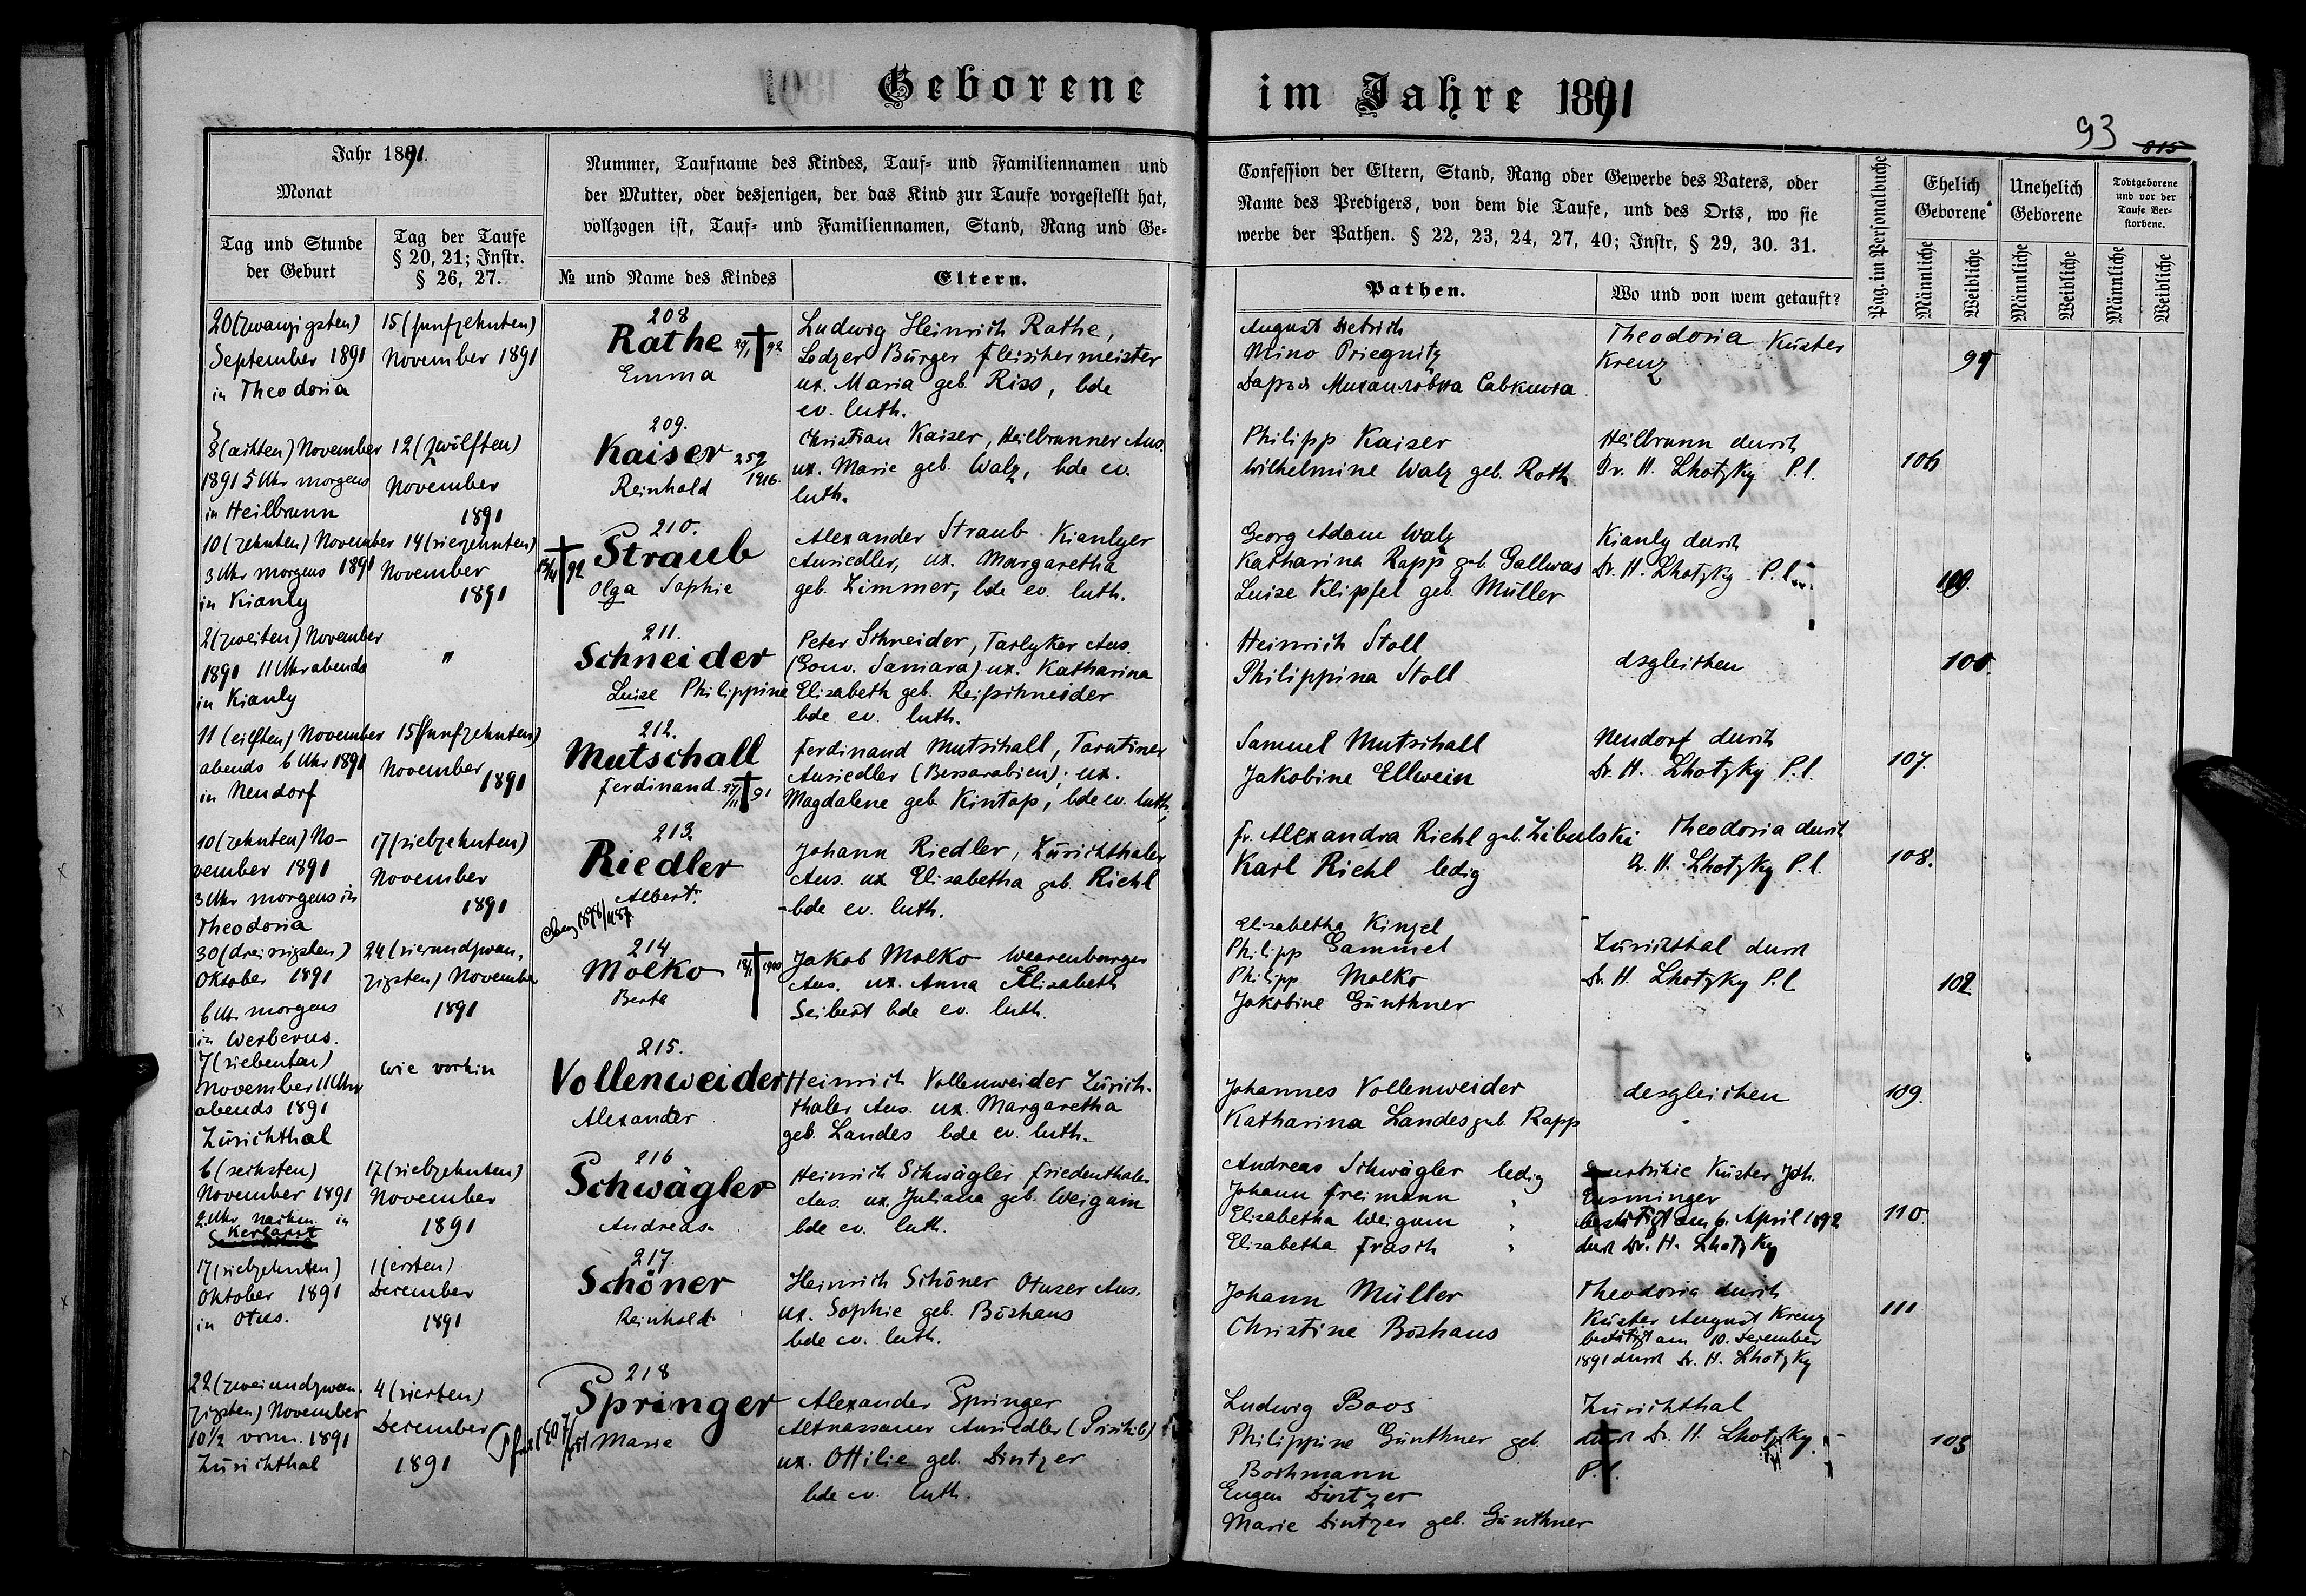 Geborene im Jahre 1891
93
815
Jahr 1891.
Monat
Tag und Stunde
der Geburt
Tag der Taufe
§ 20, 21; Instr.
§ 26, 27.
Nummer, Taufname des Kindes, Tauf- und Familiennamen und
der Mutter, oder desjenigen, der das Kind zur Taufe vorgestellt hat,
vollzogen ist, Tauf- und Familiennamen, Stand, Rang und Ge-
№ und Name des Kindes
Eltern.
Confession der Eltern, Stand, Rang oder Gewerbe des Vaters, oder
Name des Predigers, von dem die Taufe, und des Orts, wo sie
werbe der Pathen. § 22, 23, 24, 27, 40; Instr, § 29, 30. 31.
Pathen.
Wo und von wem getauft?
Pag. im Personalbuche
Ehelich
Geborene
Männliche
Weibliche
Unehelich
Geborene
Männliche
Weibliche
Todtgeborene
und vor der
Taufe Ver-
storbene.
Männliche
Weibliche
20 (zwanzigsten)
September 1891
in Theodosia
15 (funfzehnten)
November 1891
208
Rathe 29/1 † 92
Emma
Ludwig Heinrich Rathe,
Lodzer Bürger Fleischermeister
ux. Maria geb. Riss, bde
ev. luth.
August Dietrich
Mino Priegnitz
Дарья Михаиловна Савкина
Theodosia Küster
Krenz
99
8 (achten) November
1891 5 Uhr morgens
in Heilbrunn
12 (zwölften)
November
1891
209.
Kaiser 259/1916.
Reinhold
Christian Kaiser, Heilbrunner Ans.
ux. Marie geb. Walz, bde ev.
luth.
Philipp Kaiser
Wilhelmine Walz geb. Roth
Heilbrunn durch
Dr. H. Lhotzky P.l.
106
10 (zehnten) November
3 Uhr morgens 1891
in Kianly
14 (vierzehnten)
November
1891
210.
† 92 Straub
Olga Sophie
Alexander Straub Kianlyer
Ansiedler, ux. Margaretha
geb. Zimmer, bde ev. luth.
Georg Adam Walz
Katharina Rapp geb. Gallwas
Luise Klipfel geb. Müller
Kianly durch
Dr. H. Lhotzky P.l.
100.
2 (zweiten) November
1891 11 Uhr abends
in Kianly
"
211.
Schneider
Luise Philippine
Peter Schneider, Tarlyker Ans.
(Gouv. Samara) ux. Katharina
Elisabeth geb. Reißschneider
bde ev. luth.
Heinrich Stoll
Philippina Stoll
dsgleichen
101.
11 (eilften) November
abends 6 Uhr 1891
in Neudorf
15 (funfzehnten)
November 1891
212.
Mutschall
Ferdinand. 27/11 † 91
Ferdinand Mutschall, Tarutiner
Ansiedler (Bessarabien). ux.
Magdalene geb. Kintop, bde ev. luth.
Samuel Mutschall
Jakobine Ellwein
Neudorf durch
Dr. H. Lhotzky P.l.
107.
10 (zehnten) No-
vember 1891
3 Uhr morgens in
Theodosia
17 (siebzehnten)
November
1891
213.
Riedler
Albert.
Johann Riedler, Zürichthaler
Ans. ux Elisabetha geb. Riehl
bde ev. luth.
Fr. Alexandra Riehl geb. Zibulski
Karl Riehl ledig
Theodosia durch
Dr. H. Lhotzky P.l.
108.
30 (dreissigsten)
Oktober 1891
6 Uhr morgens
in Werbenus.
24 (vierundzwan-
zigsten) November
1891
214
Molko 18/1 † 1900
Berta
Jakob Molko Wearenburger
Ans. ux. Anna Elisabeth
Seibert bde ev. luth.
Elisabetha Kinzel
Philipp Sammel
Philipp Molko
Jakobine Günthner
Zürichthal durch
Dr. H. Lhotzky P.l
102
7 (siebenten)
November 11 Uhr
abends 1891
Zürichthal
wie vorhin
215.
Vollenweider
Alexander
Heinrich Vollenweider Zürich-
thaler Ans. ux. Margaretha
geb. Landes bde ev. luth.
Johannes Vollenweider
Katharina Landes geb. Rapp
desgleichen
109.
6 (sechsten)
November 1891
2 Uhr nachm. in
17 (siebzehnten)
November
1891
216
Schwägler
Andreas.
Heinrich Schwägler Friedenthaler
Ans. ux. Juliana geb. Weigum
bde ev. luth.
Andreas Schwägler ledig
Johann Freimann "
Elisabetha Weigum "
Elisabetha Frasch "
Küster Joh.
Ensminger
bestätigt am 6. April 1892
durch Dr. H. Lhotzky
110.
17 (siebzehnten)
Oktober 1891
in Otus.
1 (ersten)
December
1891
217.
Schöner
Reinhold
Heinrich Schöner Otuser Ans.
ux. Sophie geb. Böshans
bde ev. luth.
Johann Müller
Christine Böshans
Theodosia durch
Küster August Krenz
bestätigt am 10. December
1891 durch Dr. H. Lhotzky
111
22 (zweiundzwan-
zigsten) November
10 1/2 vorm. 1891
Zürichthal
4 (vierten)
December
1891
218
Springer
Marie
Alexander Springer
Altnassauer Ansiedler (Prischib)
ux. Ottilie geb. Dintzer
bde ev. luth.
Ludwig Boos
Philippine Günthner geb.
Bochmann
Eugen Dintzer
Marie Dintzer geb. Günthner
Zürichthal
durch Dr. H. Lhotzky
P.l.
103